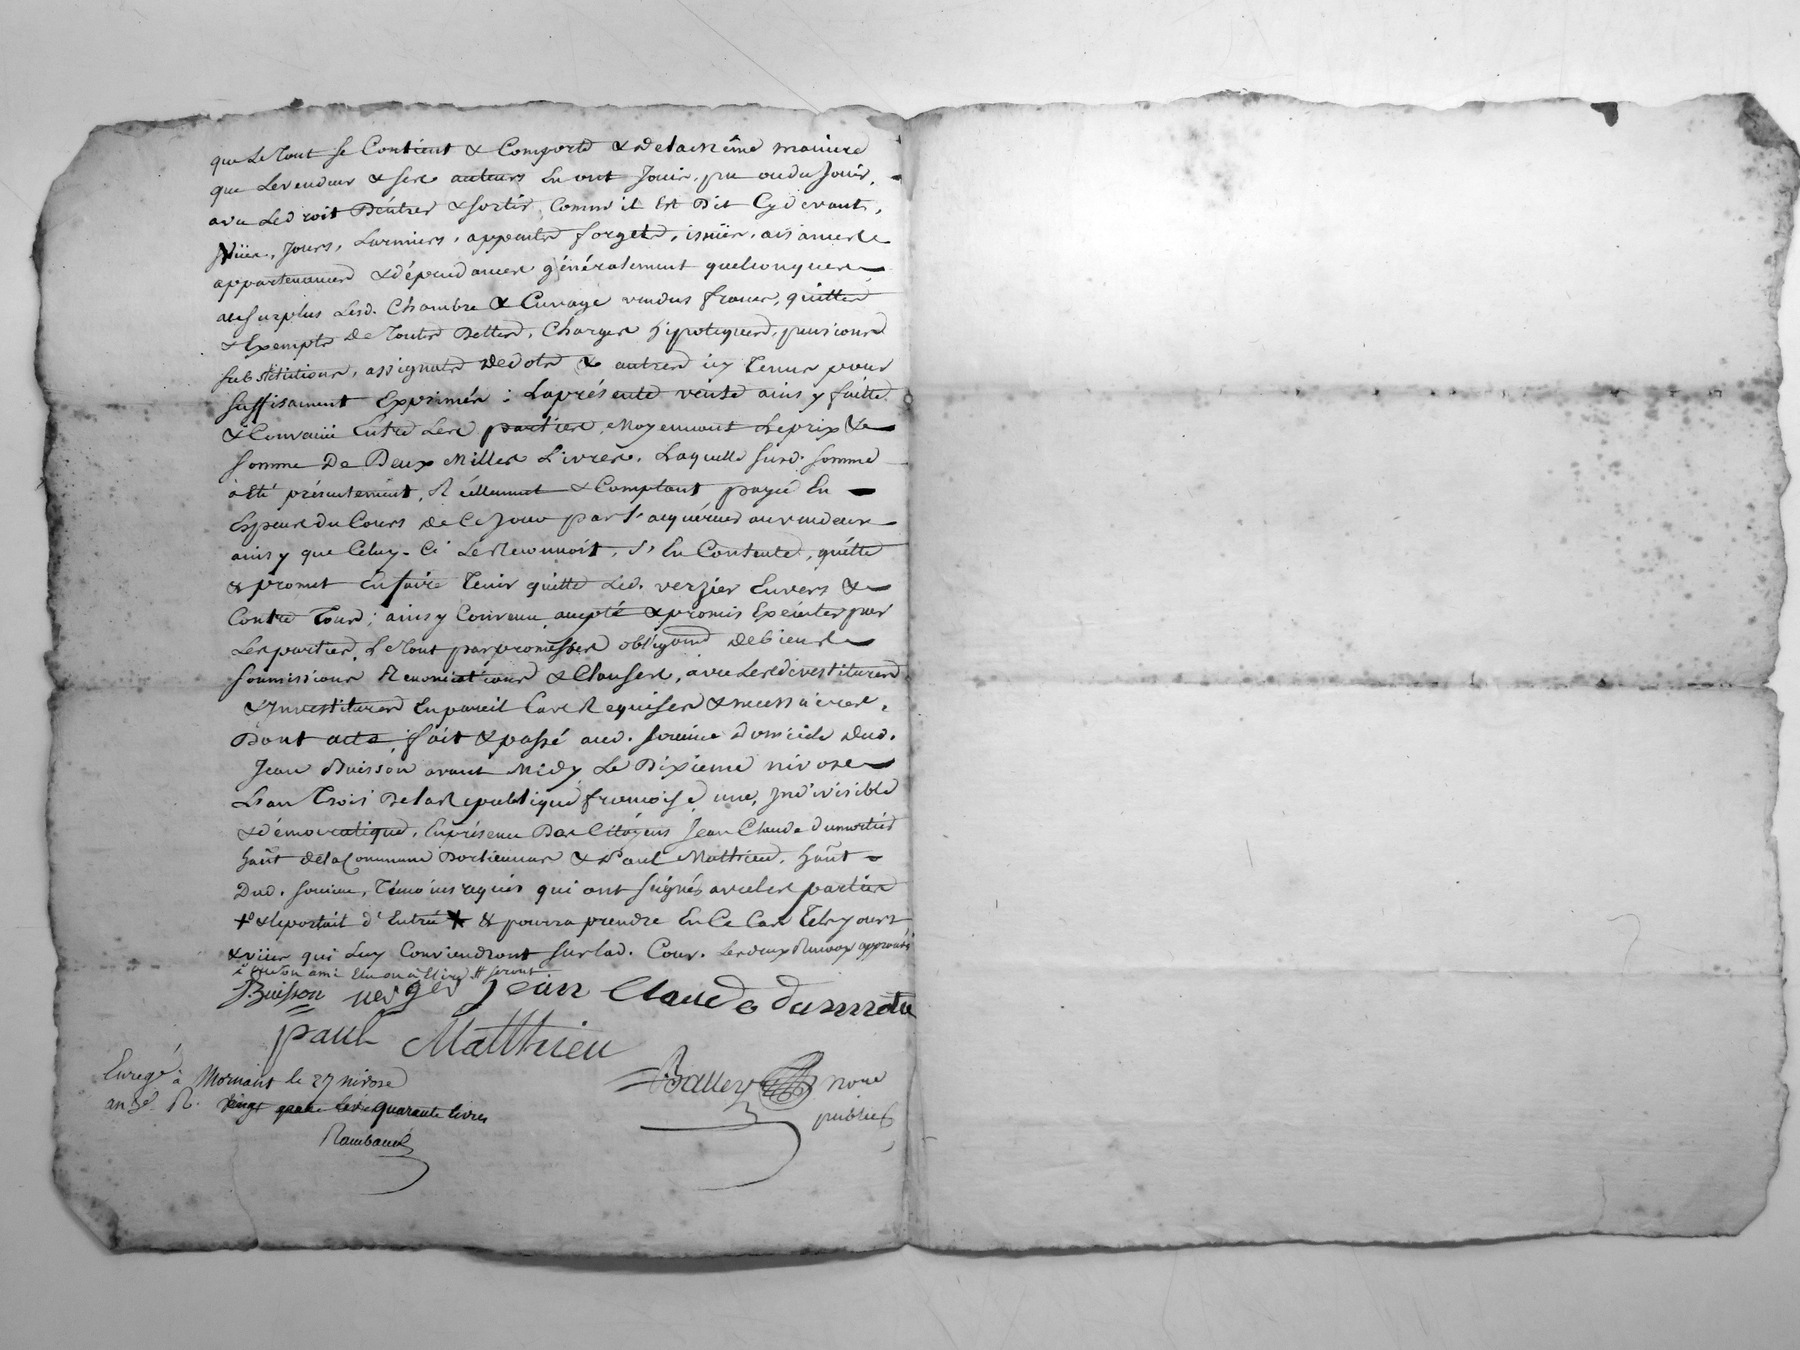 que le tout se Contient & Comporte & de la même maniere
que le vendeur & ses auteurs en ont Joui, pu ou du Jouir,
avec le droit D'éntrer & sortir, Comme il Est Dit Cydevant,
Vües, Jours, Larmiers, appentes forgets, issües, aisances
appartenances & dépendances généralement quelconques
au surplus lesd. Chambre & Cuvage vendus francs, quittes
& Exempts de Toutes Dettes, Charges hipoteques, pensions
substitutions, assignats de dots & autres icy Tenus pour
suffisament Exprimés : La présente vente ainsy faitte
& Convenüe Entre les parties, Moyennant le prix &
somme De Deux Milles Livres, Laquelle susd. somme
à été présentement, Réellement & Comptant payé En
Especes du Cours de Ce Jour par l'acquéreur au vendeur
ainsy que Celuy-Ci le Reconnoit, s'En Contente, quitte
& promet En faire Tenir quitte led. verzier Envers &
Contre Tous; ainsy Convenu accepté & promis Exécuter par
Les parties, le tout par promesses obligaons de biens
soumissions Renonciations & Clauses, avec les dévestitures
& Investitures En pareil Cas Requises & necessaires,
Dont acte, fait & passé aud. domicile dud.
Jean Buisson avant Midy Le Dixieme nivose
L'an Trois De la Republique françoise une, Indivisible
& démocratique, En présence Des Citoyens Jean Claude dumortié
hañt de la Commune & Paul Matthieu, hañt
Dud. Témoins requis qui ont signés avec les parties
& le portail d'Entrée & pourra prendre En Ce Cas Tels jours
& vües qui Luy Conviendront sur lad. Cour. Les deux Renvois approuvés
Buisson verzier Jean Claude dumortie
paul Matthieu
Enregé à Mornant le 27 nivose
an 3e R. vingt quatre quarante livres
Rambaud
nore
public